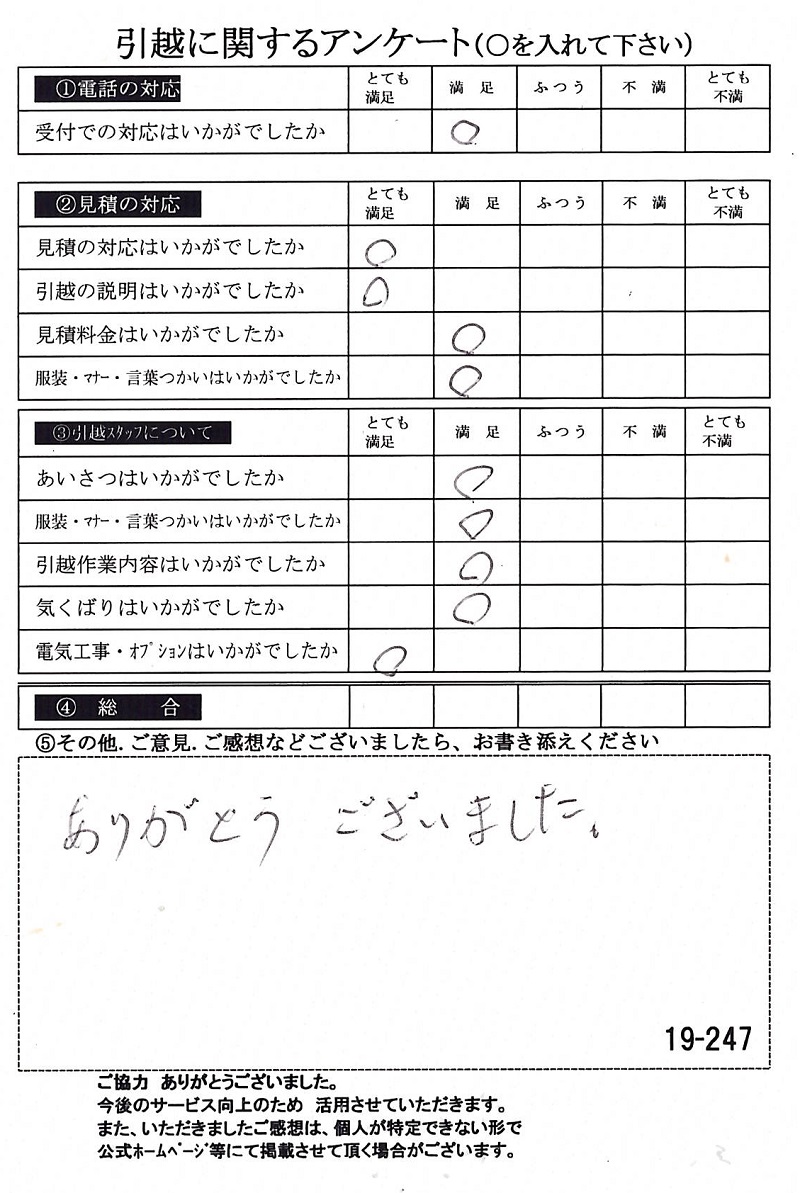 引越に関するアンケート(〇を入れて下さい)
①電話の対応 とても満足 満 足 ふつう 不 満 とても不満
受付での対応はいかがでしたか 〇
②見積の対応 とても満足 満 足 ふつう 不 満 とても不満
見積の対応はいかがでしたか 〇
引越の説明はいかがでしたか 〇
見積料金はいかがでしたか 〇
服装・マナー・言葉つかいはいかがでしたか 〇
③引越スタッフについて とても満足 満 足 ふつう 不 満 とても不満
あいさつはいかがでしたか 〇
服装・マナー・言葉つかいはいかがでしたか 〇
引越作業内容はいかがでしたか 〇
気くばりはいかがでしたか 〇
電気工事・オプションはいかがでしたか 〇
④ 総 合
⑤その他.ご意見.ご感想などございましたら、お書き添えください
ありがとう ございました。
19-247
ご協力 ありがとうございました。
今後のサービス向上のため 活用させていただきます。
また、いただきましたご感想は、個人が特定できない形で
公式ホームページ等にて掲載させて頂く場合がございます。